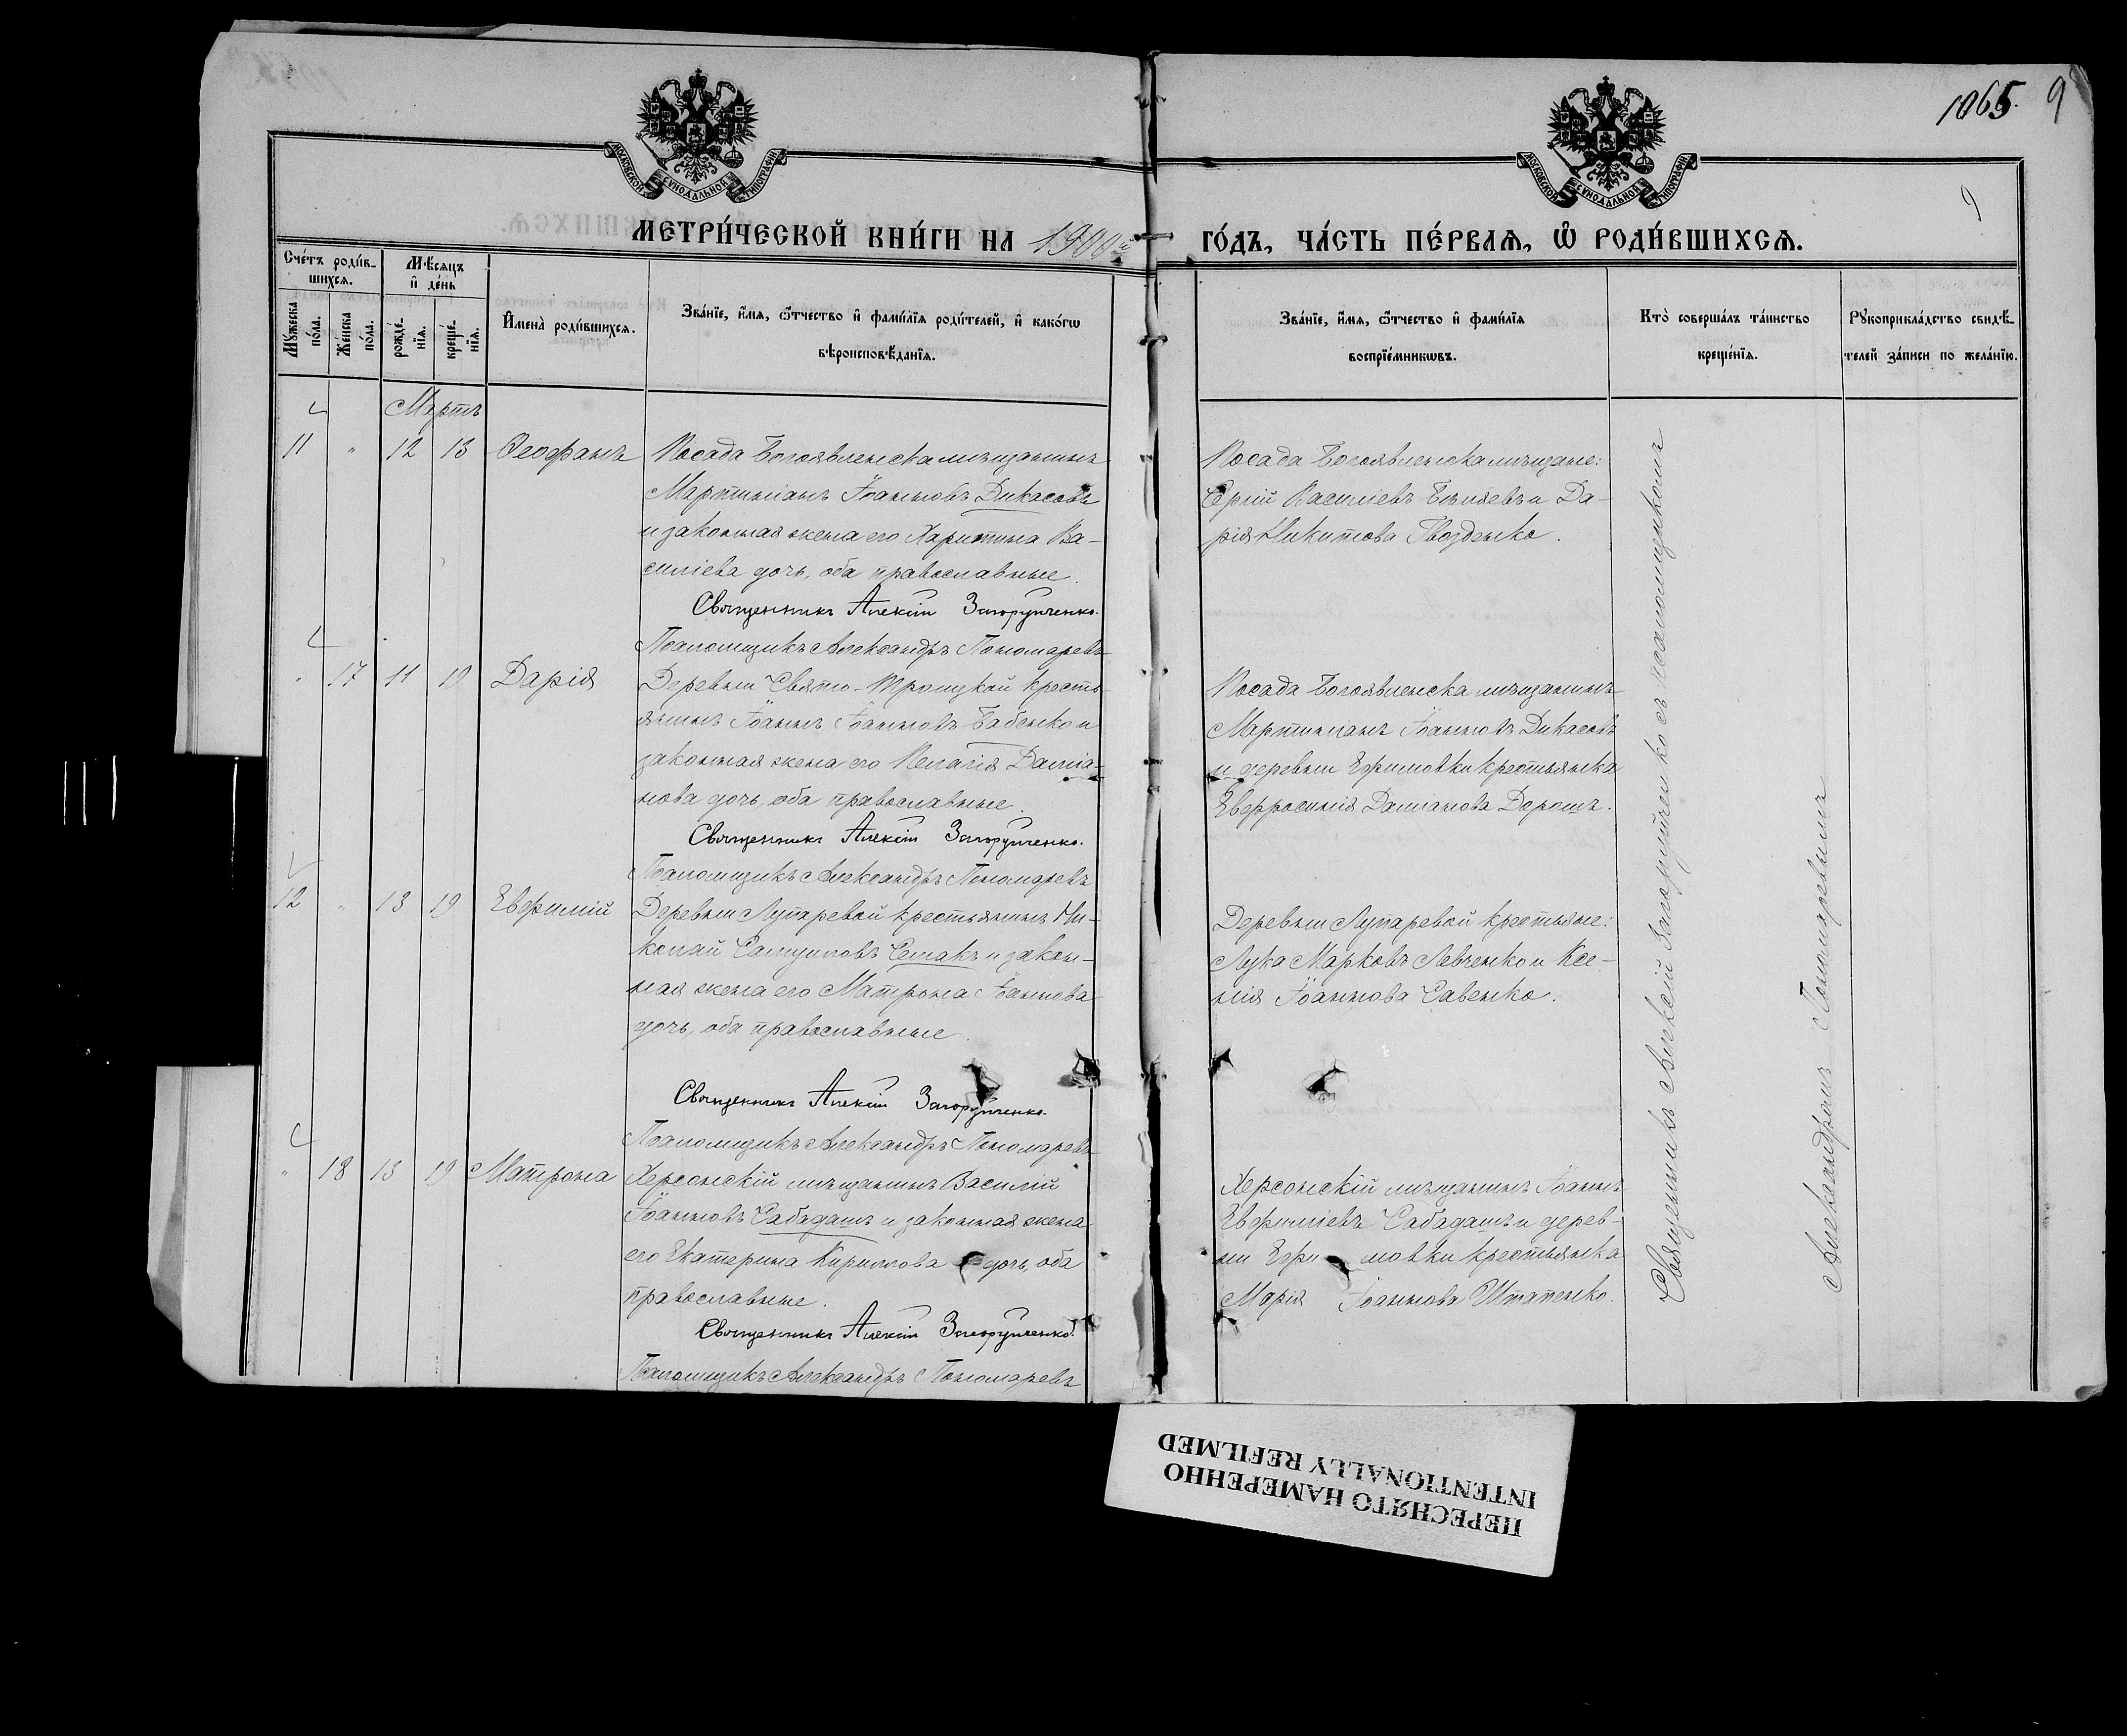 1065. 9
9
МОСКОВСКОЙ СѴНОДАЛЬНОЙ ТИПОГРАФІИ
МОСКОВСКОЙ СѴНОДАЛЬНОЙ ТИПОГРАФІИ
МЕТРИ́ЧЕСКОЙ КНИ́ГИ НА 1900й
ГО́ДЪ, ЧА́СТЬ ПЕ́РВАѦ, Ѽ РОДИ́ВШИХСѦ.
Сче́тъ роди́в-
шихсѧ.
Мꙋ́жеска
по́ла.
Же́нска
по́ла.
Мѣ́сѧцъ
и҆ де́нь
рожде́-
нїѧ.
креще́-
нїѧ.
И҆мена̀ роди́вшихсѧ.
Зва́нїе, и҆́мѧ, ѻ҆́тчество и҆ фами́лїѧ роди́телей, и҆ како́гѡ
вѣроисповѣ́данїѧ.
Зва́нїе, и҆́мѧ, ѻ҆́тчество и҆ фами́лїѧ
воспрїе́мникѡвъ.
Кто̀ соверша́лъ та́инство
креще́нїѧ.
Рꙋкоприкла́дство свидѣ́-
телей за́писи по жела́нїю.
Мартъ
11 " 12 13 Ѳеофанъ
Посада Богоявленска мѣщанинъ
Мартиніанъ Іоанновъ Дикасовъ
и законная жена его Харитина Ва-
силіева дочь, оба православные.
Священникъ Алексій Загоруйченко.
Псаломщикъ Александръ Пономаревъ
Посада Богоявленска мѣщане:
Сергій Василіевъ Бѣляевъ и Да-
рія Никитова Гвозденко.
" 17 11 19 Дарія
Деревни Свято-Троицкой кресть-
янинъ Іоаннъ Іоанновъ Бабенко и
законная жена его Пелагія Даміа-
нова дочь, оба православные.
Священникъ Алексій Загоруйченко.
Псаломщикъ Александръ Пономаревъ
Посада Богоявленска мѣщанинъ
Мартиніанъ Іоанновъ Дикасовъ
и деревни Ефимовки крестьянка
Евфросинія Даміанова Дорошъ.
12 " 13 19 Евфимій
Деревни Лупаревой крестьянинъ Ни-
колай Самуиловъ Семакъ и закон-
ная жена его Матрона Іоаннова
дочь, оба православные.
Священникъ Алексій Загоруйченко.
Псаломщикъ Александръ Пономаревъ
Деревни Лупаревой крестьяне:
Лука Марковъ Левченко и Ксе-
нія Іоаннова Савенко.
" 18 13 19 Матрона
Херсонскій мѣщанинъ Василій
Іоанновъ Сабадашъ и законная жена
его Екатерина Кириллова дочь, оба
православные.
Священникъ Алексій Загоруйченко.
Псаломщикъ Александръ Пономаревъ
Херсонскій мѣщанинъ Іоаннъ
Евфиміевъ Сабадашъ и дерев-
ни Ефимовки крестьянка
Марія Іоаннова Штатенко.
Священникъ Алексій Загоруйченко съ псаломщикомъ
Александромъ Пономаревымъ
ПЕРЕСНЯТО НАМЕРЕННО
INTENTIONALLY REFILMED